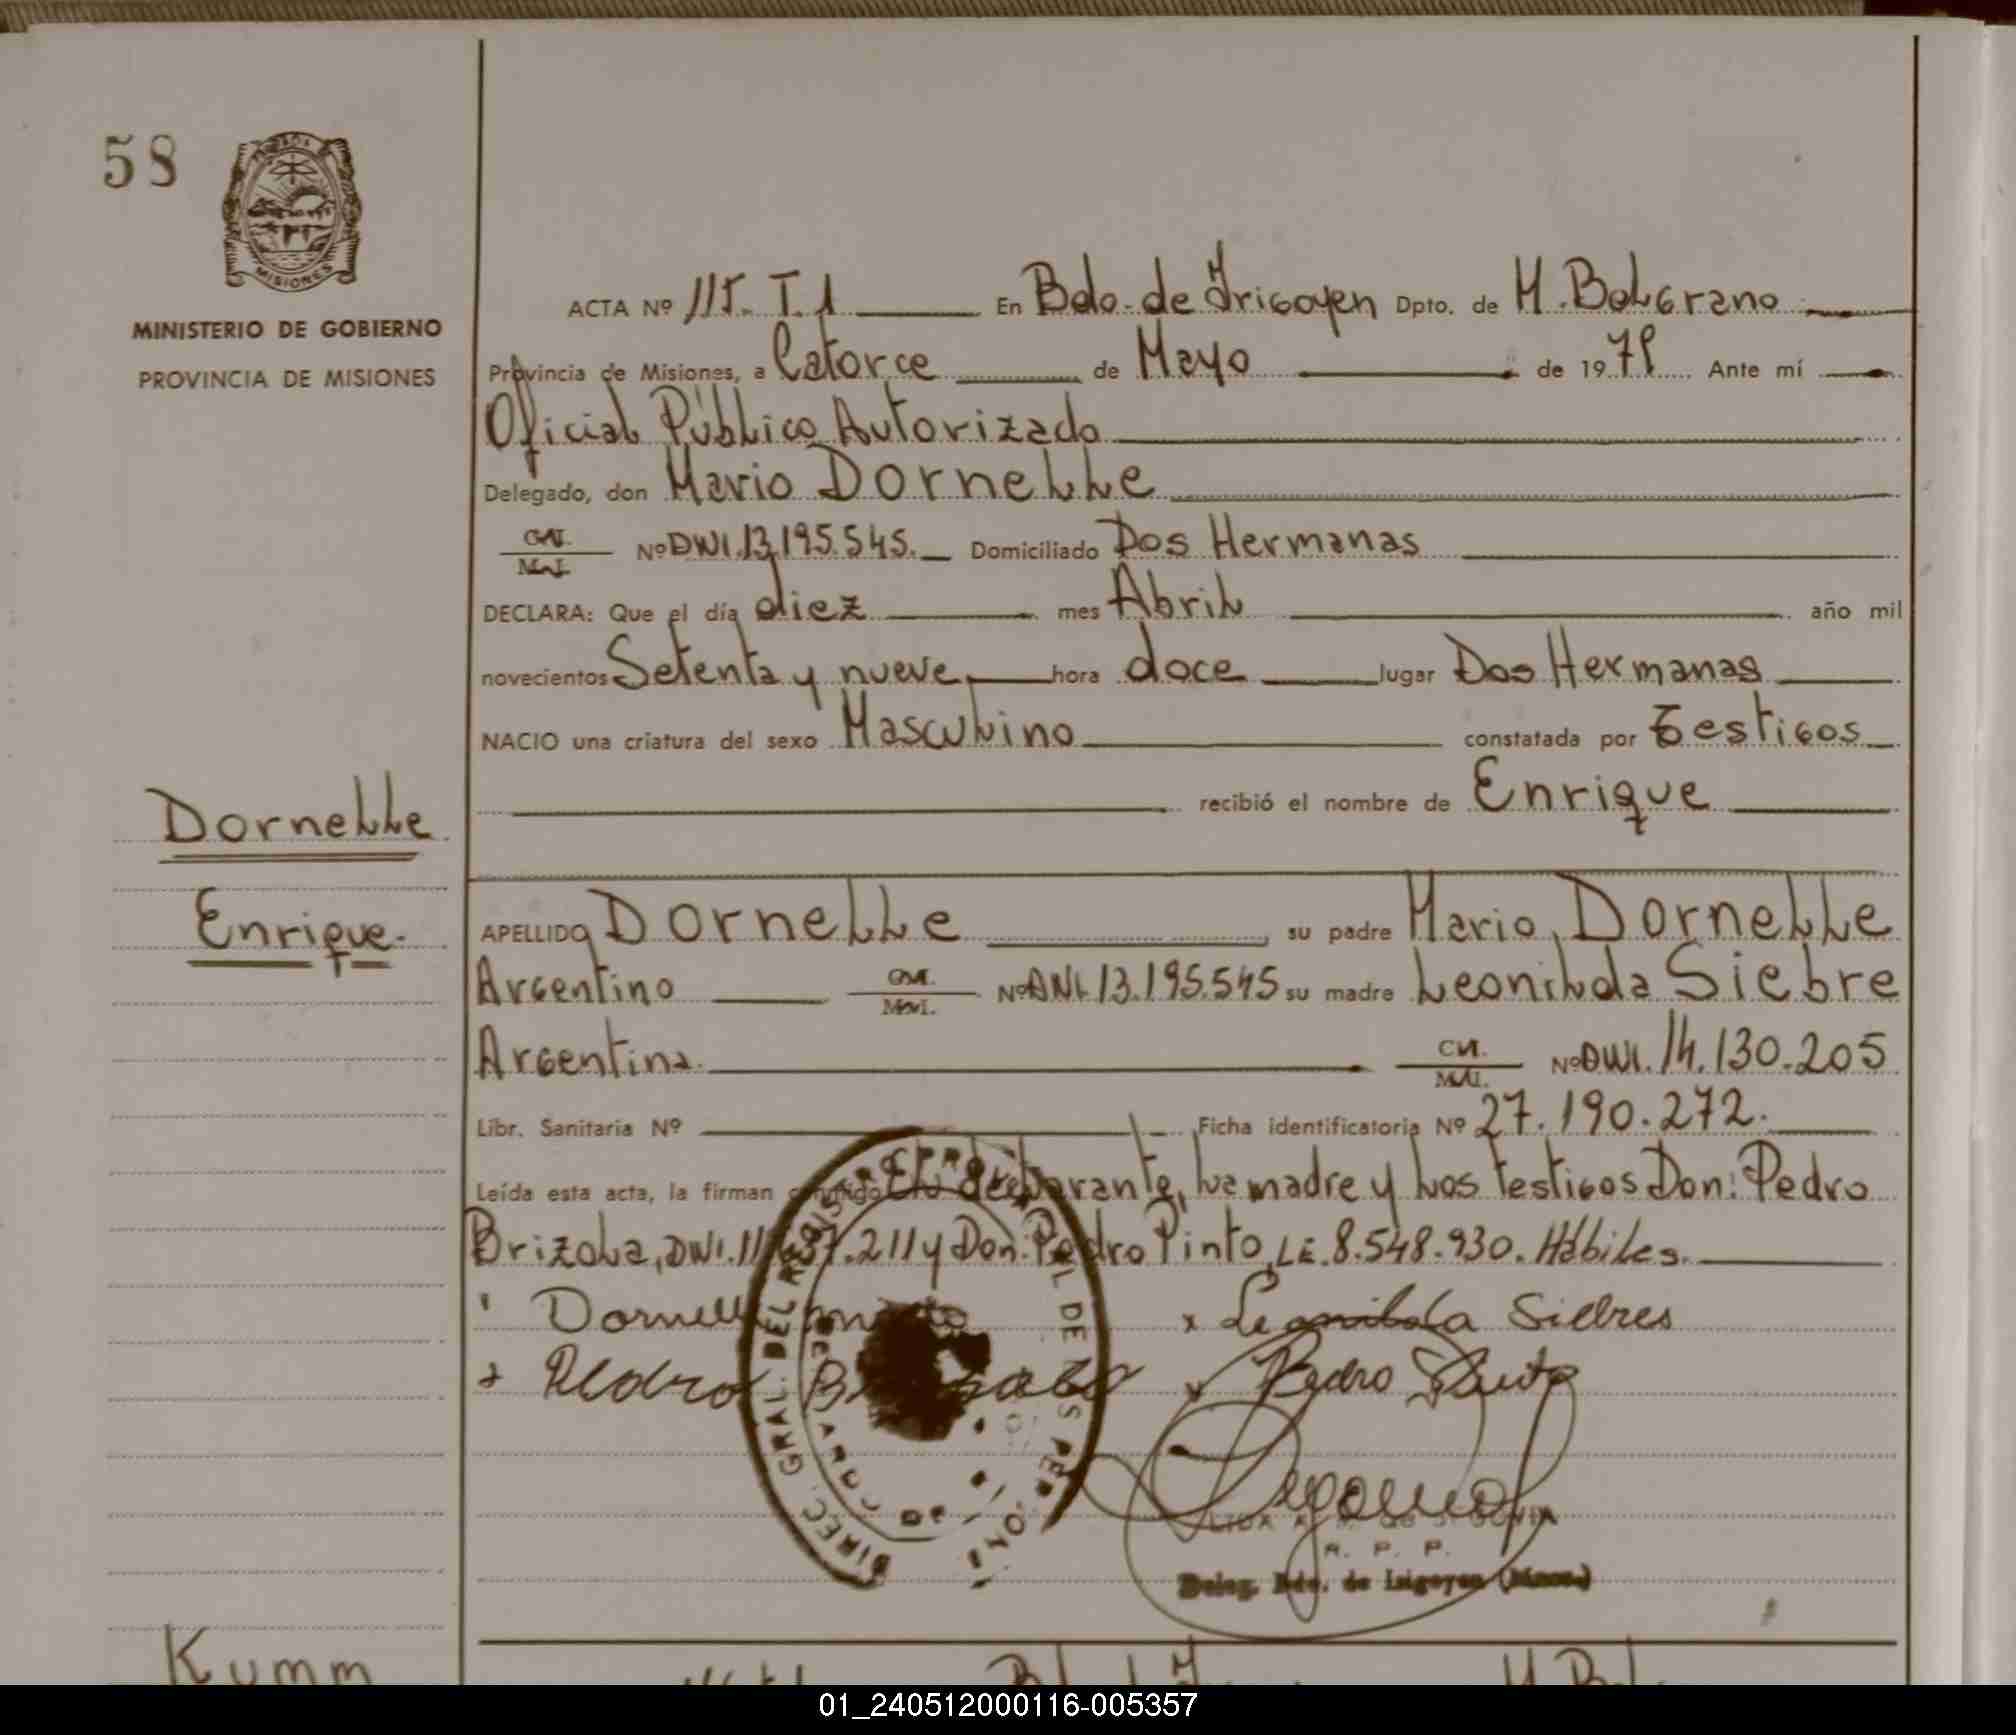 58
MISIONES
MINISTERIO DE GOBIERNO
PROVINCIA DE MISIONES
ACTA Nº 115. T.1 En Bdo. de Irigoyen Dpto. de M. Belgrano
Provincia de Misiones, a Catorce de Mayo de 1979 Ante mí
Oficial Público Autorizado
Delegado, don Mario Dornelle
C.I. M.I. Nº DNI. 13.195.545. Domiciliado Dos Hermanas
DECLARA: Que el día diez mes Abril año mil
novecientos Setenta y nueve hora doce lugar Dos Hermanas
NACIO una criatura del sexo Masculino constatada por Testigos
recibió el nombre de Enrique
Dornelle
Enrique.
APELLIDO Dornelle su padre Mario Dornelle
Argentino C.I. M.I. Nº DNI. 13.195.545 su madre Leonilda Siebre
Argentina. C.I. M.I. Nº DNI. 14.130.205
Libr. Sanitaria Nº Ficha identificatoria Nº 27.190.272.
Leída esta acta, la firman conmigo El declarante, la madre y los testigos Don: Pedro
Brizola, DNI. 11 7.211 y Don: Pedro Pinto, LE. 8.548.930. Hábiles.
Leonilda Siebres
Pedro Pinto
DIREC. GRAL. DEL REGISTRO DE LAS PERSONAS
R. P. P.
Deleg. Bdo. de Irigoyen (Mnes.)
Kumm
01_240512000116-005357